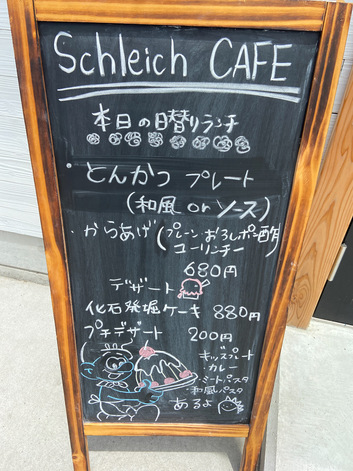 Schleich CAFE
本日の日替りランチ
・とんかつ プレート
(和風 or ソース)
・からあげ(プレーン おろしポン酢
ユーリンチー)
680円
デザート
化石発掘ケーキ 880円
プチデザート 200円
キッズプレート
カレー
・ミートパスタ
・和風パスタ
あるよ